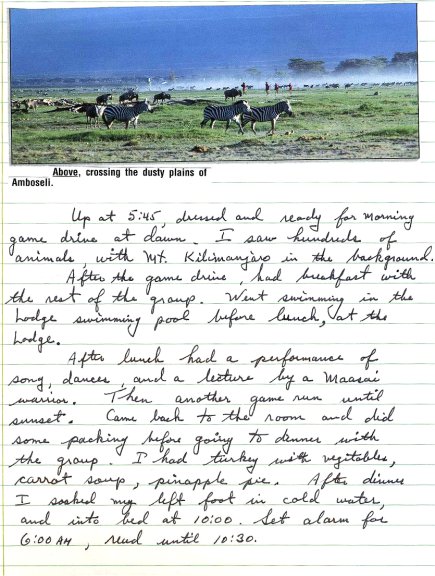 Above, crossing the dusty plains of
Amboseli.
Up at 5:45, dressed and ready for morning
game drive at dawn. I saw hundreds of
animals, with Mt. Kilimanjaro in the background.
After the game drive, had breakfast with
the rest of the group. Went swimming in the
Lodge swimming pool before lunch, at the
Lodge.
After lunch had a performance of
song, dances, and a lecture by a Maasai
warrior. Then another game run until
sunset. Came back to the room and did
some packing before going to dinner with
the group. I had turkey with vegitables,
carrot soup, pinapple pie. After dinner
I soaked my left foot in cold water,
and into bed at 10:00. Set alarm for
6:00 AM, read until 10:30.